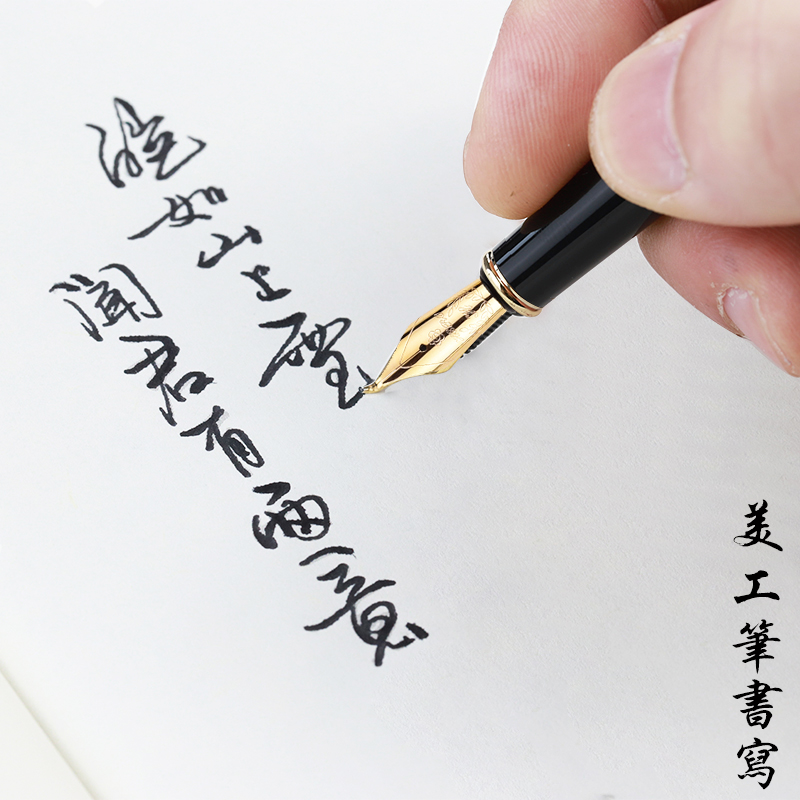 皚如山上雪
聞君有兩意
美工筆書寫